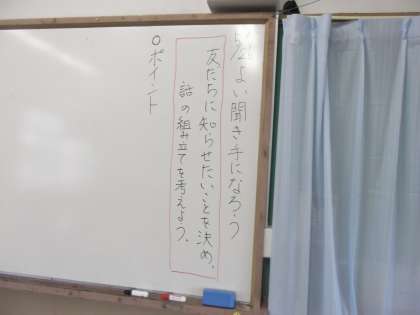 5/2 よい聞き手になろう
友だちに知らせたいことを決め、
話の組み立てを考えよう。
○ポイント